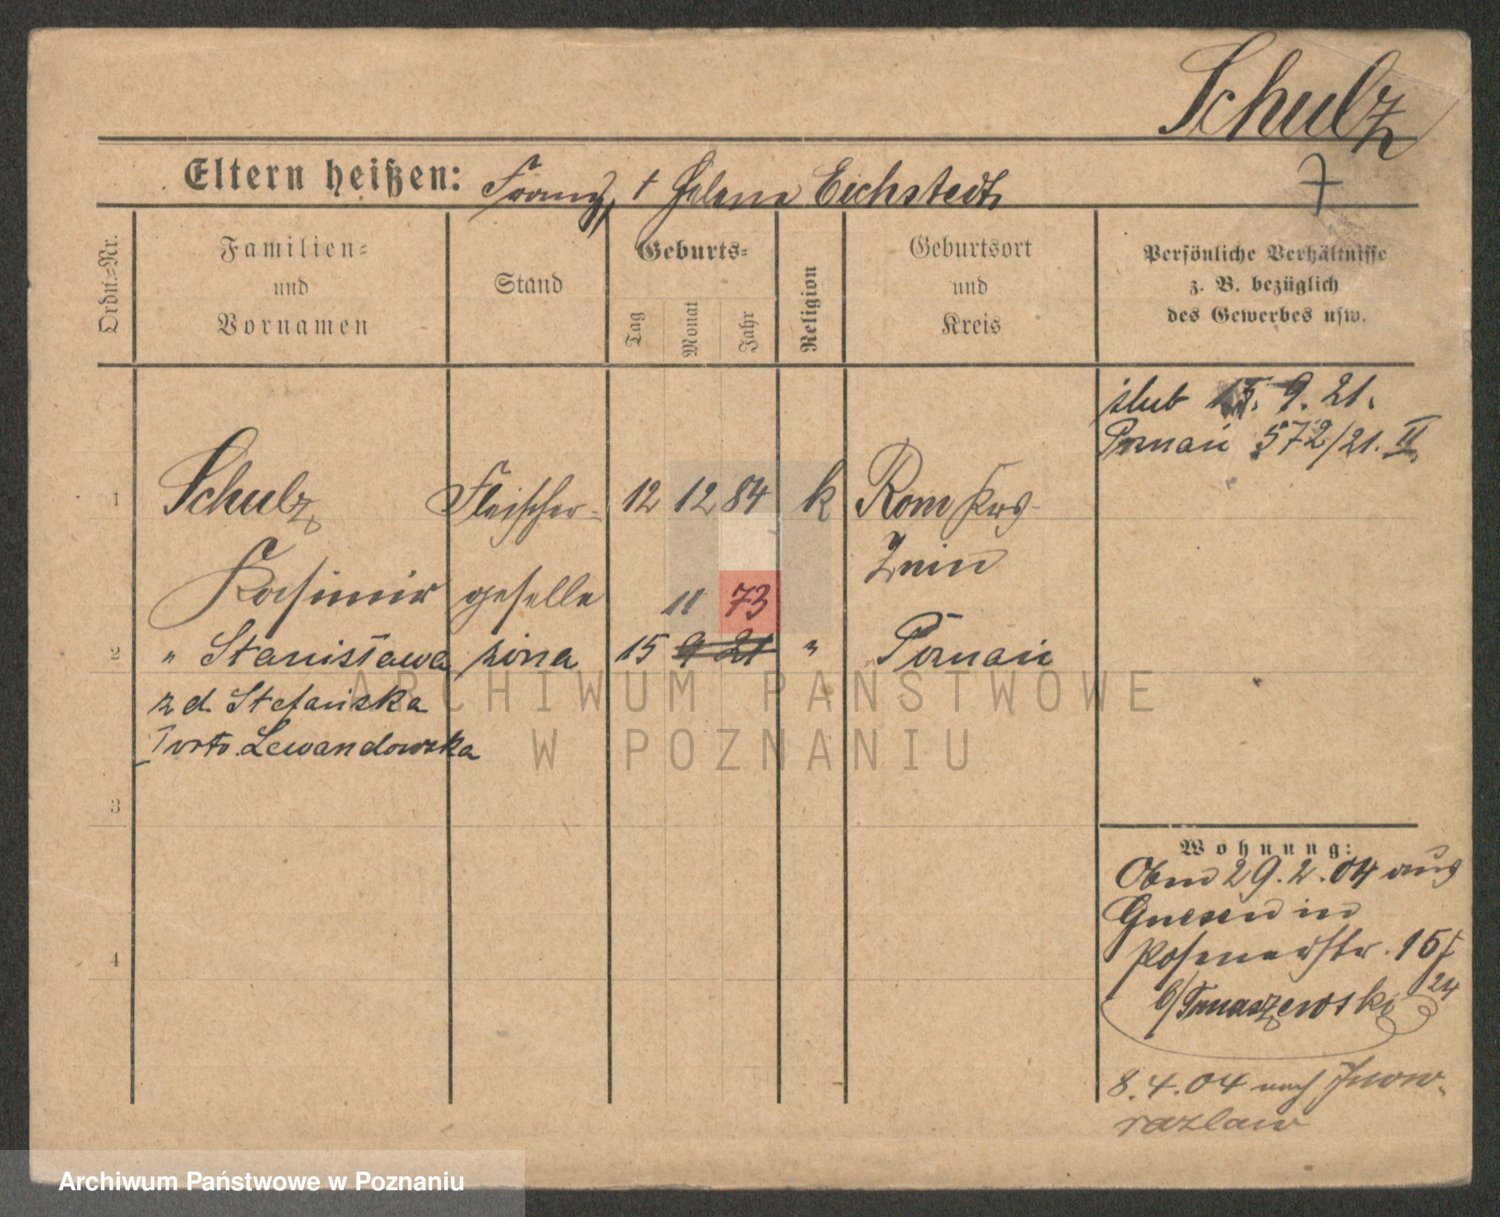 Schulz
7
Eltern heißen: Franz, † Helene Eichstedt
Ordn.=Nr.
Familien= und Vornamen
Stand
Geburts= Tag Monat Jahr
Religion
Geburtsort und Kreis
Persönliche Verhältnisse z. B. bezüglich des Gewerbes usw.
ślub 15. 9. 21.
Poznań 572/21. II.
1 Schulz Fleischer- 12 12 84 k Rom Krs
Znin
Kasimir geselle
11 73
2 " Stanisława żona 15 9 21 " Poznań
z d. Stefańska
I voto Lewandowska
3
4
Wohnung:
29. 2. 04 aus
Gnesen in
Posenerstr. 15
b/Tomaszewski 24
8. 4. 04 nach Inow-
razlaw
ARCHIWUM PAŃSTWOWE
W POZNANIU
Archiwum Państwowe w Poznaniu